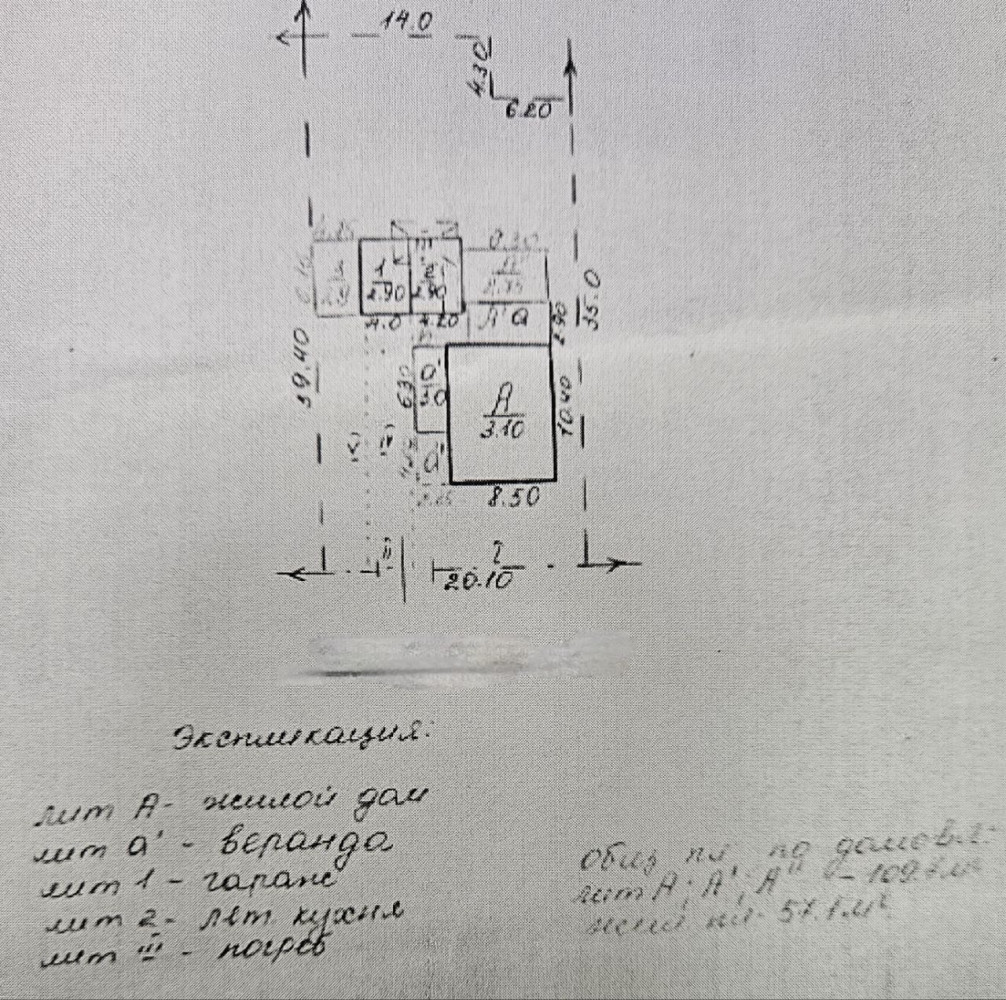 14.0
4.30
6.20
1
2.90
2
2.90
III
4.0
4.20
А'
а
2.90
35.0
39.40
6.30
а
3.0
А
3.10
10.40
а'
8.50
II
2
20.10
Экспликация:
лит А - жилой дом
лит а' - веранда
лит 1 - гараж
лит 2 - лет кухня
лит III - погреб
общ пл. по домовл.
лит А; А'; А" -
жил пл. 57.1 м²